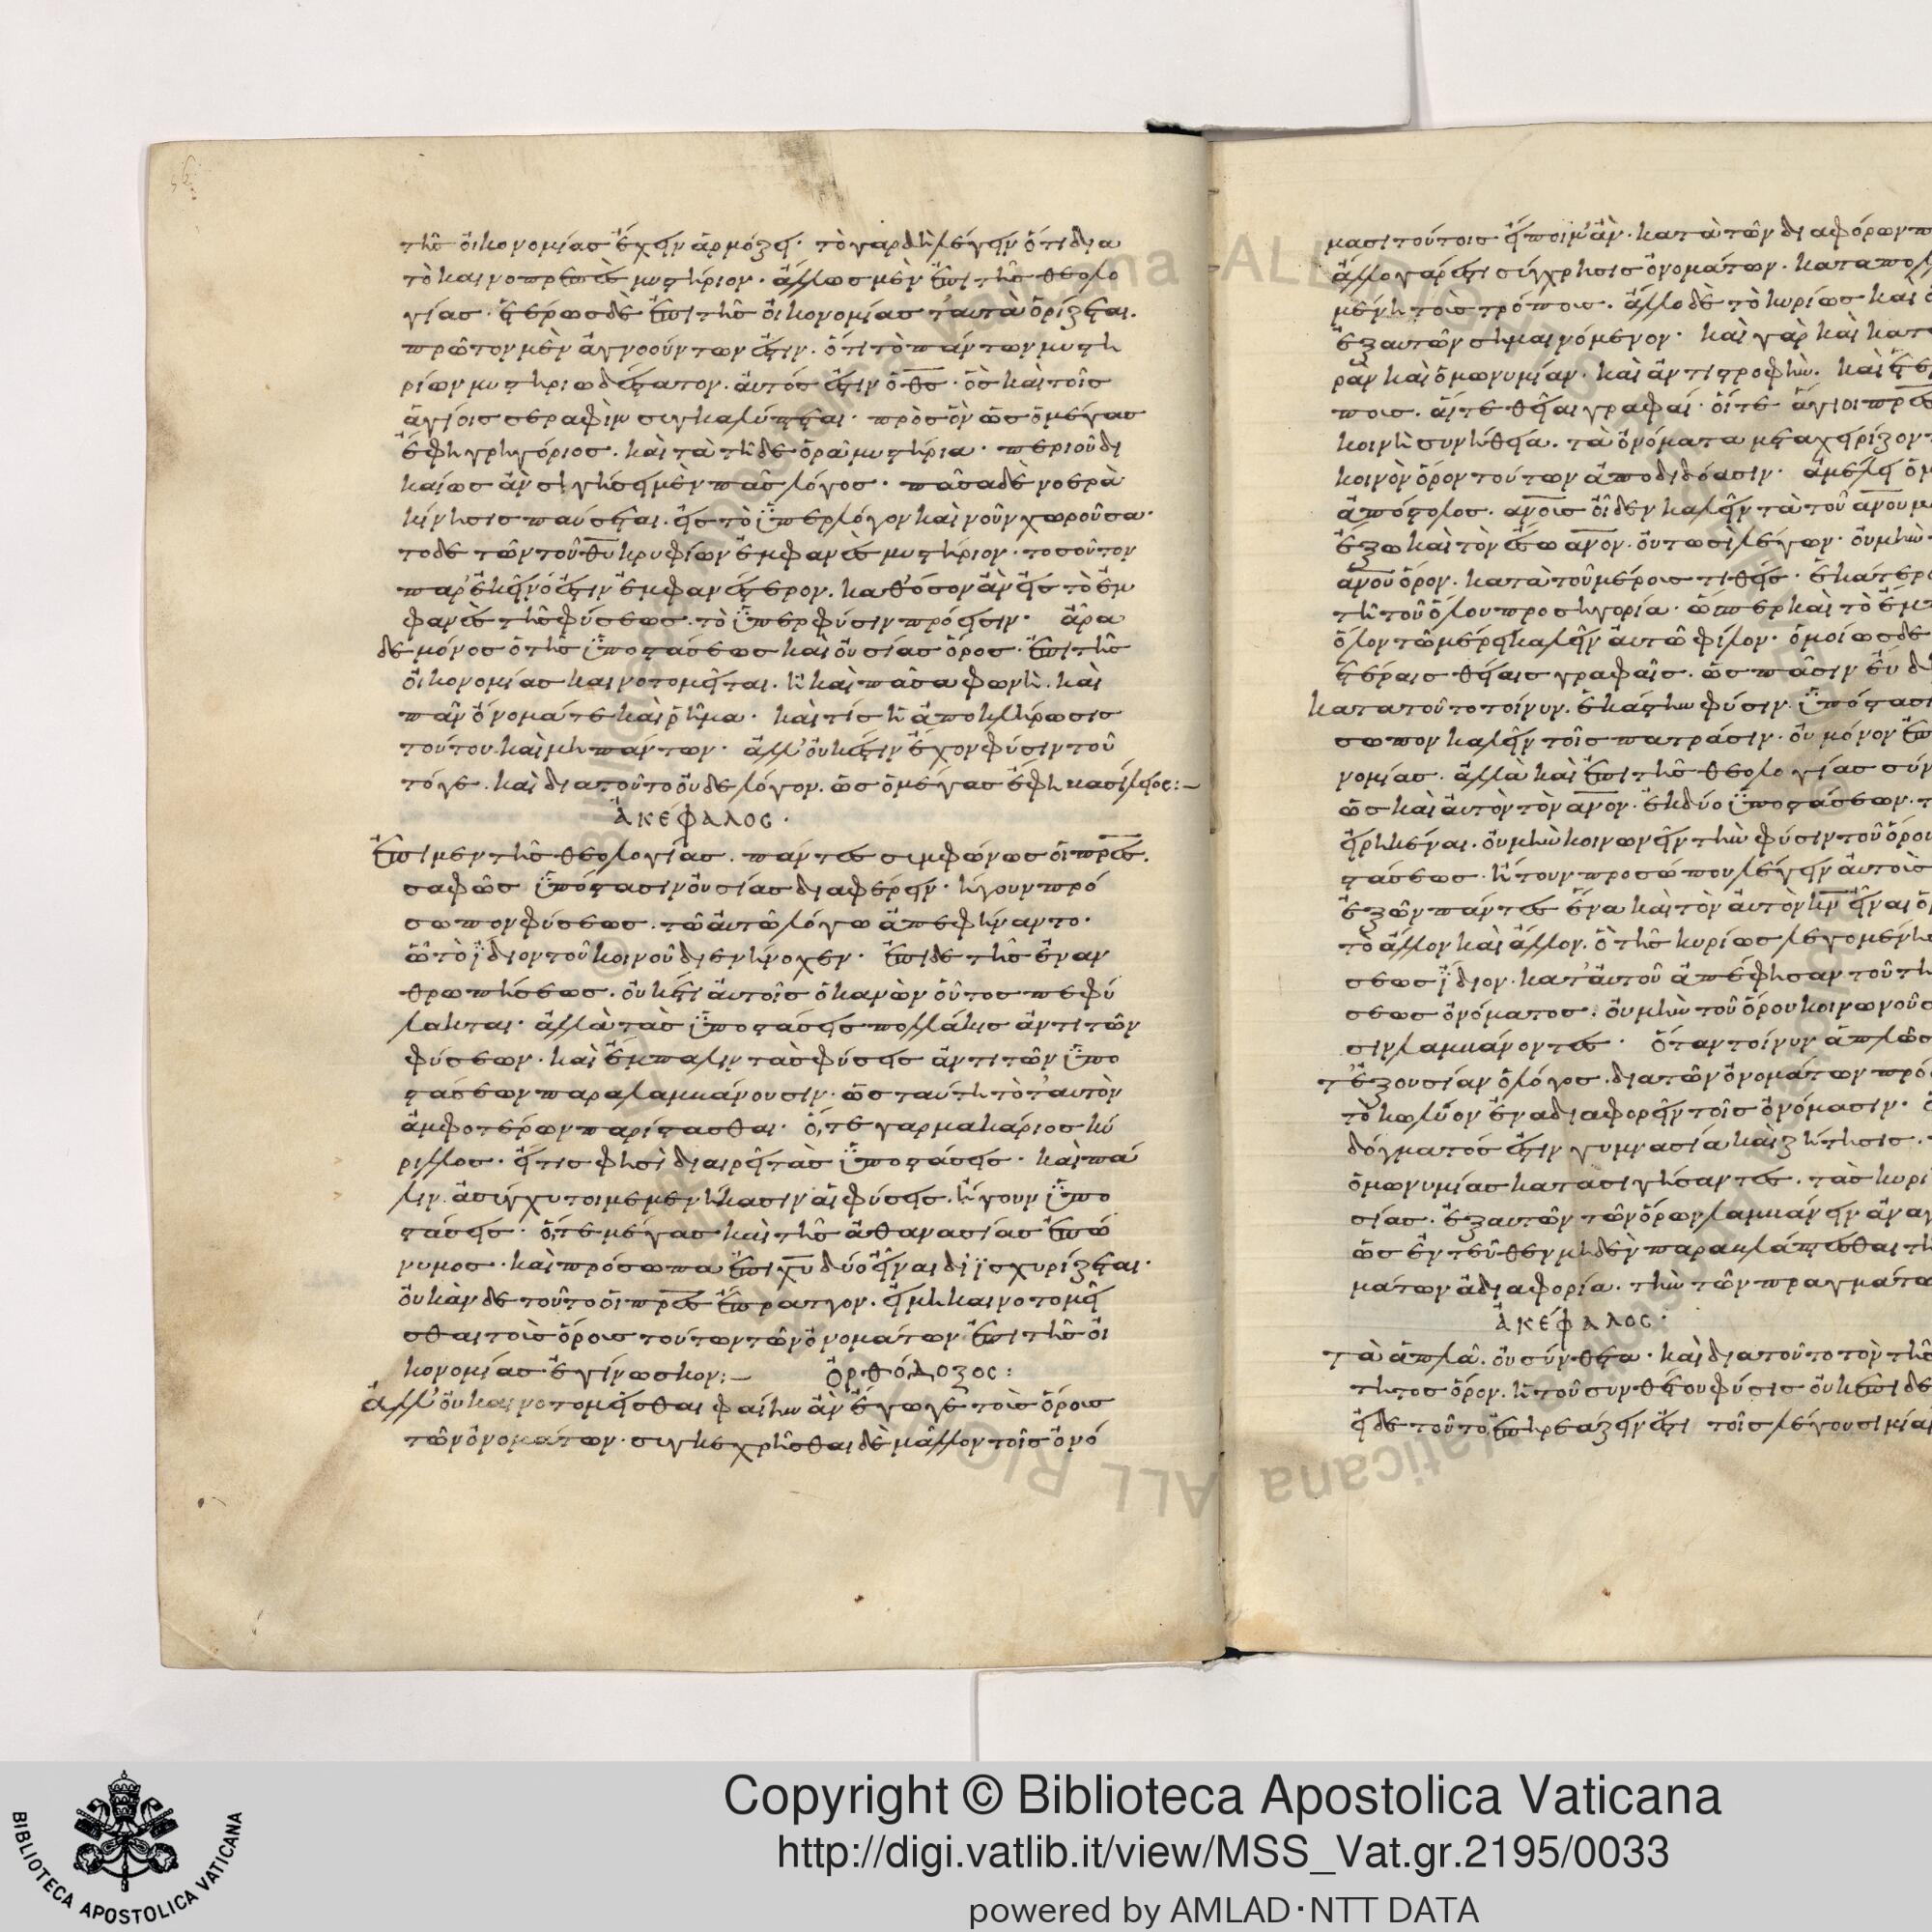 τῆς οἰκονομίας ἔχειν ἁρμόζει· τὸ γὰρ δὴ λέγειν ὅτι δια
τὸ καινοπρεπὲς μυστήριον· ἄλλως μὲν ἐπι τῆς θεολο
γίας· ἑτέρως δὲ ἐπι τῆς οἰκονομίας ταυτὰ ὁρίζεται.
πρῶτον μὲν ἀγνοούντων ἐστιν· ὅτι τὸ πάντων μυστη
ρίων μυστηριωδέστατον· αὐτός ἐστιν ὁ θς· ὃς καὶ τοῖς
ἁγίοις σεραφὶμ συγκαλύπτεται· πρὸς ὃν ὡς ὁ μέγας
ἔφη γρηγόριος· καὶ τὰ τῆδε ὁρᾶ μυστήρια· περι οὗ δι
καίως ἂν σιγήσει μὲν πᾶς λόγος· πᾶσα δὲ νοερὰ
κίνησις παύσεται· εἰς τὸ ὑπερ λόγον καὶ νοῦν χωροῦσα·
το δε τῶν τοῦ θυ κρυφίων ἐμφανὲς μυστήριον· τοσοῦτον
παρ' ἐκεῖνό ἐστιν ἐμφανέστερον· καθόσον ἂν εἰς τὸ ἐμ
φανὲς τῆς φύσεως· τὸ ὑπερ φύσιν πρόεισιν· ἆρα
δε μόνος ὁ τῆς ὑποστάσεως καὶ οὐσίας ὅρος· ἐπι τῆς
οἰκονομίας καινοτομεῖται· ἢ καὶ πᾶσα φωνὴ· καὶ
πᾶν ὄνομά τε καὶ ῥῆμα· καὶ τίς ἡ ἀποκλήρωσις
τούτου καὶ μη πάντων· ἀλλ' οὐκ ἐστιν ἔχον φύσιν τοῦ
τό γε· καὶ δια τοῦτο οὐδε λόγον· ὡς ὁ μέγας ἔφη βασίλειος:–
ἀκέφαλος·
Ἐπι μεν τῆς θεολογίας· πάντες συμφώνως οἱ πρες·
σαφῶς ὑπόστασιν οὐσίας διαφέρειν· ἤγουν πρό
σωπον φύσεως· τῶ αὐτῶ λόγω ἀπεφήναντο·
ὧ τὸ ἴδιον τοῦ κοινοῦ διενήνοχεν· ἐπι δε τῆς ἐναν
θρωπήσεως· οὐκέτι αὐτοῖς ὁ κανὼν οὗτος πεφύ
λακται· ἀλλὰ τὰς ὑποστάσεις πολλάκις ἀντι τῶν
φύσεων· καὶ ἔμπαλιν τὰς φύσεις ἀντι τῶν ὑπο
στάσεων παραλαμβάνουσιν· ὡς ταύτη τὸ ταυτὸν
ἀμφοτέρων παρίστασθαι· ὅ, τε γαρ μακάριος κύ
ριλλος· εἴ τις φησὶ διαιρεῖ τὰς ὑποστάσεις· καὶ πά
λιν· ἀσύγχυτοι μεμενήκασιν αἱ φύσεις· ἤγουν ὑπο
στάσεις· ὅ, τε μέγας καὶ τῆς ἀθανασίας ἐπώ
νυμος· καὶ πρόσωπα ἐπι χυ δύο εἶναι διϊσχυρίζεται·
οὐκ ἂν δε τοῦτο οἱ πρες ἔπραττον· εἰ μη καινοτομεῖ
σθαι τοὺς ὅρους τούτων τῶν ὀνομάτων ἐπι τῆς οἰ
κονομίας ἐγίνωσκον:– ὀρθόδοξος:
Ἀλλ' οὐ καινοτομεῖσθαι φαίην ἂν ἔγωγε τοὺς ὅρους
τῶν ὀνομάτων· συγκεχρῆσθαι δὲ μᾶλλον τοῖς ὀνό
μασι τούτοις εἴποιμ' ἂν· κατὰ τῶν διαφόρων
ἄλλο γάρ ἐστι σύγχρησις ὀνομάτων·
μένη τοῖς τρόποις· ἄλλο δὲ τὸ κυρίως καὶ
ἐξ αυτῶν σημαινόμενον· καὶ γὰρ καὶ
ρὰν καὶ ὁμωνυμίαν· καὶ ἀντιστροφὴν· καὶ
ποις· αἵ τε θεῖαι γραφαί· οἵ τε ἅγιοι
κοινὴ συνήθεια· τὰ ὀνόματα
κοινὸν ὅρον τούτων ἀποδιδόασιν· ἀμέλει
ἀπόστολος· ανους οἶδεν καλεῖν τὰ τοῦ ανου
ἔξω καὶ τὸν ἔσω ανον· οὑτωσὶ λέγων· οὐ μὴν
ανου ὅρον· κατὰ τοῦ μέρους τιθεὶς·
τῆ τοῦ ὅλου προσηγορία· ὥσπερ καὶ τὸ
ὅλον τῶ μέρει καλεῖν αὐτῶ φίλον· ὁμοίως δε
ἑτέραις θείαις γραφαῖς· ὡς πᾶσιν
κατα τοῦτο τοίνυν· ἑκάστην φύσιν·
σωπον καλεῖν τοῖς πατράσιν· οὐ μόνον
νομίας· ἀλλὰ καὶ ἐπι τῆς θεολογίας
ὡς καὶ αὐτὸν τὸν ανον· ἐκ δύο ὑποστάσεων·
εἰρηκέναι· οὐ μὴν κοινωνεῖν τὴν φύσιν τοῦ ὅρου
στάσεως· ἤτουν προσώπου λέγειν αὐτοὺς
ἐξ ὧν πάντες ἕνα καὶ τὸν αὐτὸν κν εἶναι
τὸ ἄλλον καὶ ἄλλον· ὃ τῆς κυρίως λεγομένης
σεως ἴδιον· κατ' αὐτοῦ ἀπέφησαν τοῦ
σεως ὀνόματος· οὐ μὴν τοῦ ὅρου
σιν λαμβάνοντες· ὅταν τοίνυν ἁπλῶς
τ' ἐξουσίαν ὁ λόγος· δια τῶν ὀνομάτων
τὸ κωλῦον ἐναδιαφορεῖν τοῖς ὀνόμασιν·
δόγματός ἐστιν γυμνασία καὶ ζήτησις·
ὁμωνυμίας κατασιγήσαντες· τὰς
σίας· ἐξ αυτῶν τῶν ὅρων λαμβάνειν
ὡς ἐντεῦθεν μηδὲν παραβλάπτεσθαι
μάτων ἀδιαφορία· τὴν τῶν
ἀκέφαλος·
Τὰ ἁπλᾶ· οὐ σύνθετα· καὶ δια τοῦτο τὸν τῆς
τητος ὅρον· ἡ τοῦ συνθέτου φύσις οὐκ
εἰ δε τοῦτο ἐπηρεάζειν ἐστι τοῖς λέγουσι
Copyright © Biblioteca Apostolica Vaticana
http://digi.vatlib.it/view/MSS_Vat.gr.2195/0033
powered by AMLAD·NTT DATA
BIBLIOTECA APOSTOLICA VATICANA